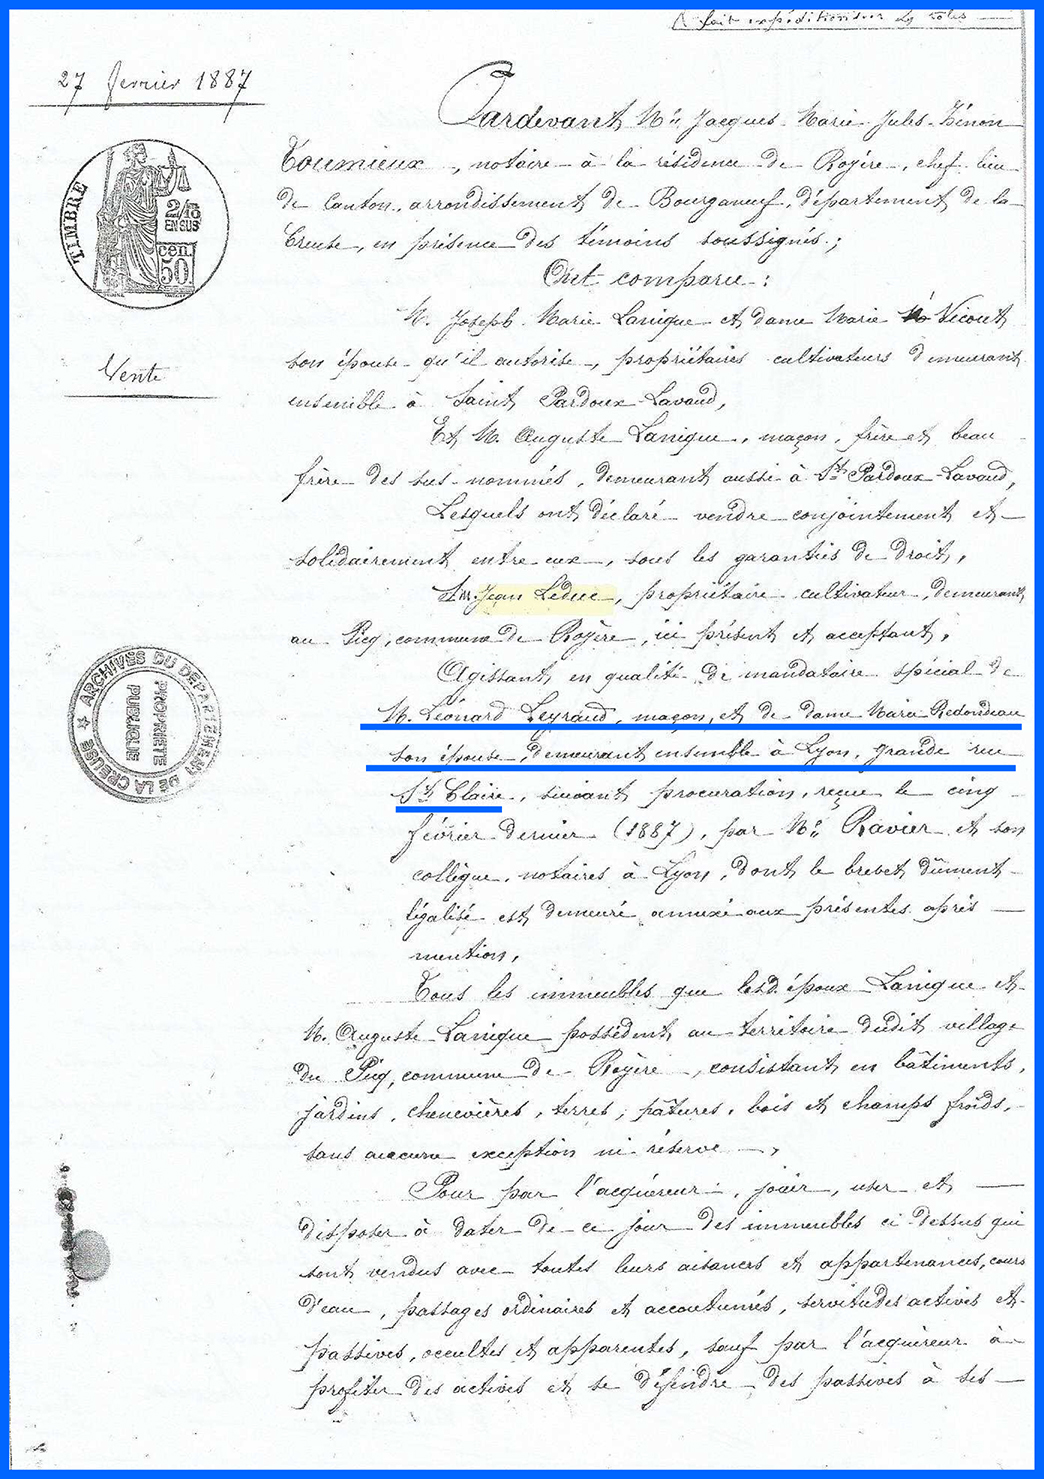 fait expédition sur rôles
27 février 1887
Pardevant Me Jacques Marie Jules Zénon
Toumieux, notaire à la résidence de Royère, chef lieu
de Canton, arrondissement de Bourganeuf, département de la
Creuse, en présence des témoins soussignés;
TIMBRE
2/10
EN SUS
50 cen.
Ont comparu:
M. Joseph Marie Lanigue et dame Marie Vicout
son épouse qu'il autorise, propriétaires cultivateurs demeurant
Vente
ensemble à Saint Pardoux-Lavaud,
Et M. Auguste Lanigue, maçon, frère et beau
frère des sus-nommés, demeurant aussi à St Pardoux-Lavaud,
Lesquels ont déclaré vendre conjointement et
solidairement entre eux, sous les garanties de droit,
à M. Jean Leduc, propriétaire cultivateur, demeurant
au Picq, commune de Royère, ici présent et acceptant,
Agissant en qualité de mandataire spécial de
M. Léonard Leyraud, maçon, et de dame Marie Redondeau
son épouse, demeurant ensemble à Lyon, grande rue
ARCHIVES DU DEPARTEMENT DE LA CREUSE
PROPRIETE
PUBLIQUE
St Claire, suivant procuration, reçue le cinq
février dernier (1887), par Me Ravier et son
collègue, notaires à Lyon, dont le brevet dûment
légalisé est demeuré annexé aux présentes après
mention,
Tous les immeubles que lesd. époux Lanigue et
M. Auguste Lanigue possèdent au territoire dudit village
du Picq, commune de Royère, consistant en bâtiments,
jardins, chenevières, terres, pâtures, bois et champs froids,
sans aucune exception ni réserve,
Pour par l'acquéreur, jouir, user et
disposer à dater de ce jour des immeubles ci-dessus qui
sont vendus avec toutes leurs aisances et appartenances, cours
d'eau, passages ordinaires et accoutumés, servitudes actives et
passives, occultes et apparentes, sauf par l'acquéreur à
profiter des actives et se défendre des passives à ses